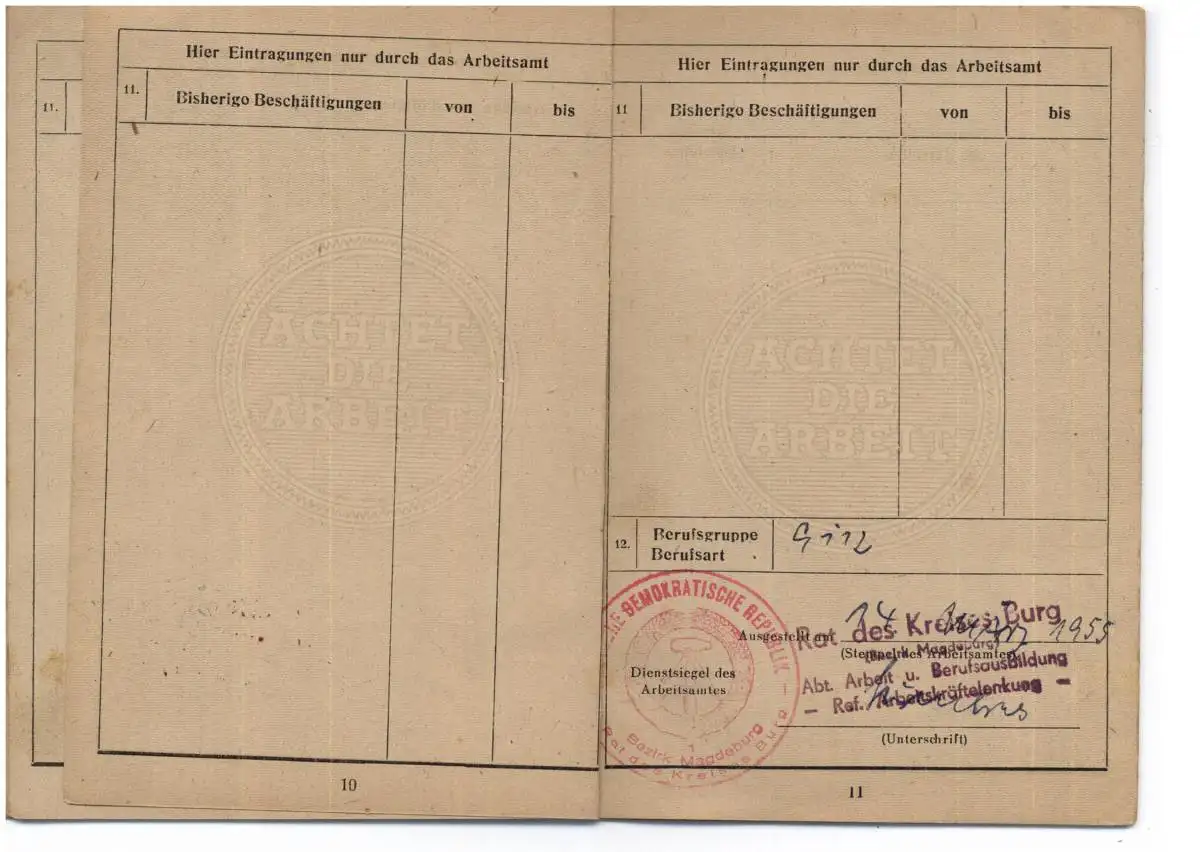 11.
Hier Eintragungen nur durch das Arbeitsamt
11.
Bisherigo Beschäftigungen
von
bis
ACHTET
DIE
ARBEIT
10
Hier Eintragungen nur durch das Arbeitsamt
11
Bisherigo Beschäftigungen
von
bis
ACHTET
DIE
ARBEIT
12.
Berufsgruppe
Berufsart
DEMOKRATISCHE REPUBLIK
Dienstsiegel des
Arbeitsamtes
1
Bezirk Magdeburg
Rat des Kreises Burg
Ausgestellt am 14. 1955
Rat des Kreises Burg
(Stempel des Arbeitsamtes)
(Bezirk Magdeburg)
Abt. Arbeit u. Berufsausbildung
— Ref. Arbeitskräftelenkung —
(Unterschrift)
11